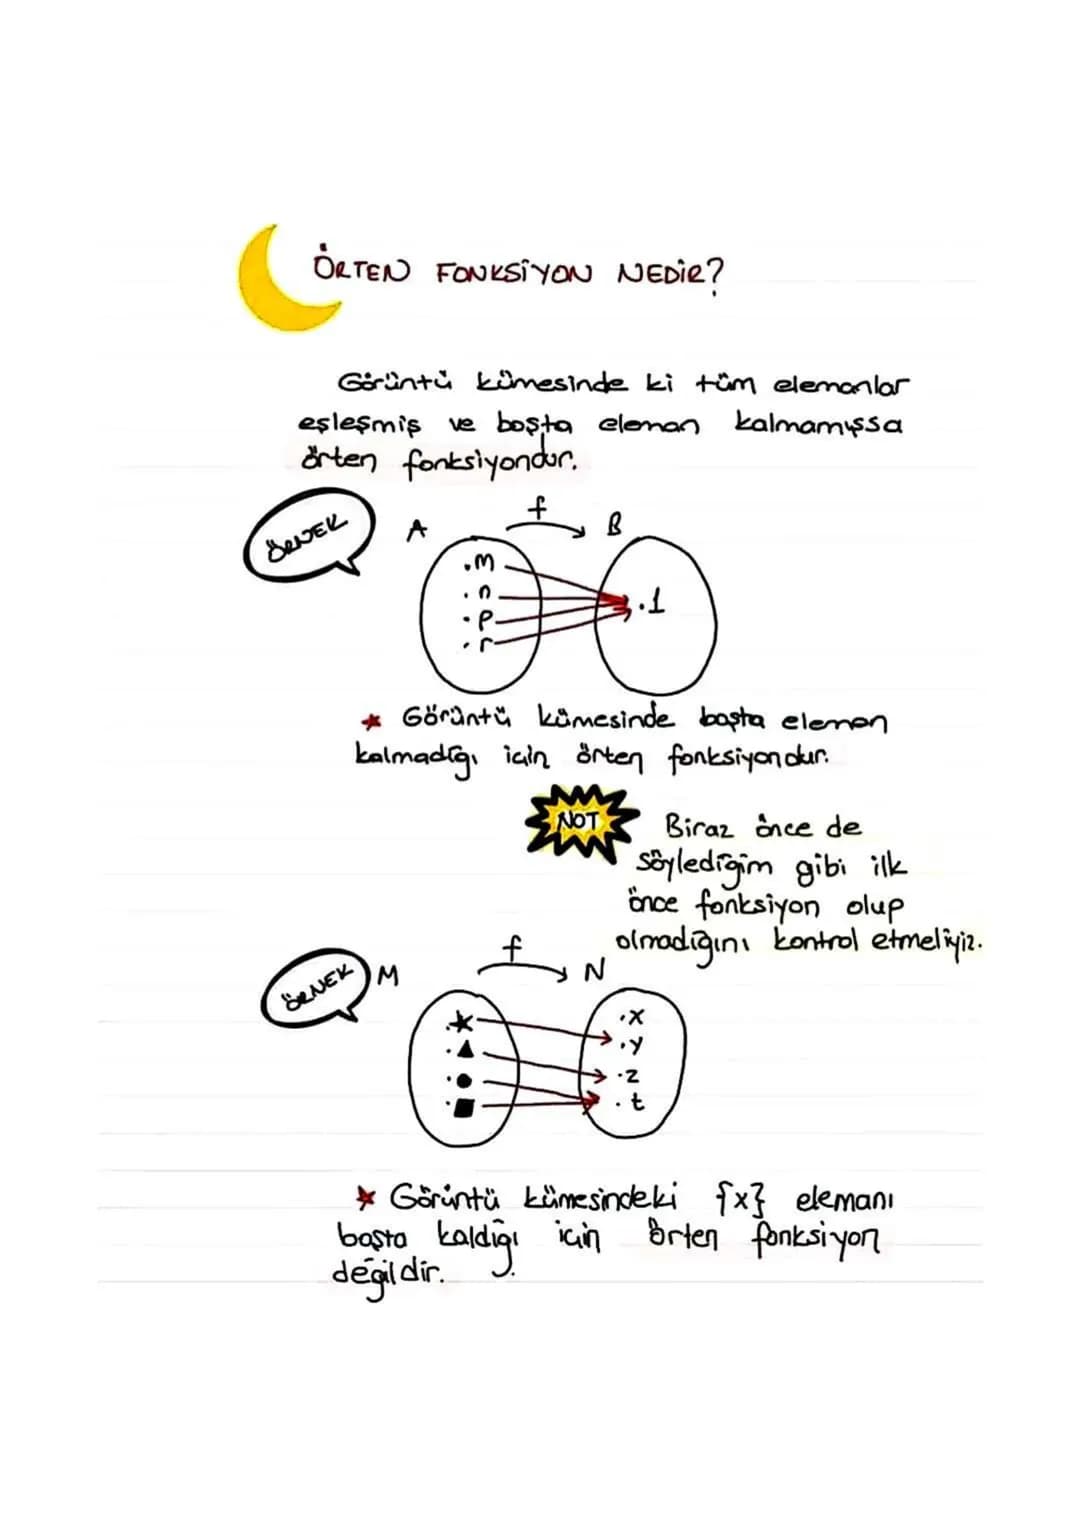 ÖRTEN FONKSİYON NEDİR?
Görüntü kümesinde ki tüm elemanlar
eşleşmiş ve boşta eleman kalmamışsa
örten fonksiyondur.
ÖRNEK
A f B
.m
.n
.p
.r
.1
Görüntü kümesinde boşta eleman
kalmadığı için örten fonksiyondur.
NOT
Biraz önce de
söylediğim gibi ilk
önce fonksiyon olup
olmadığını kontrol etmeliyiz.
ÖRNEK
M f N
.x
.y
.z
.t
Görüntü kümesindeki {x} elemanı
boşta kaldığı için örten fonksiyon
değildir.